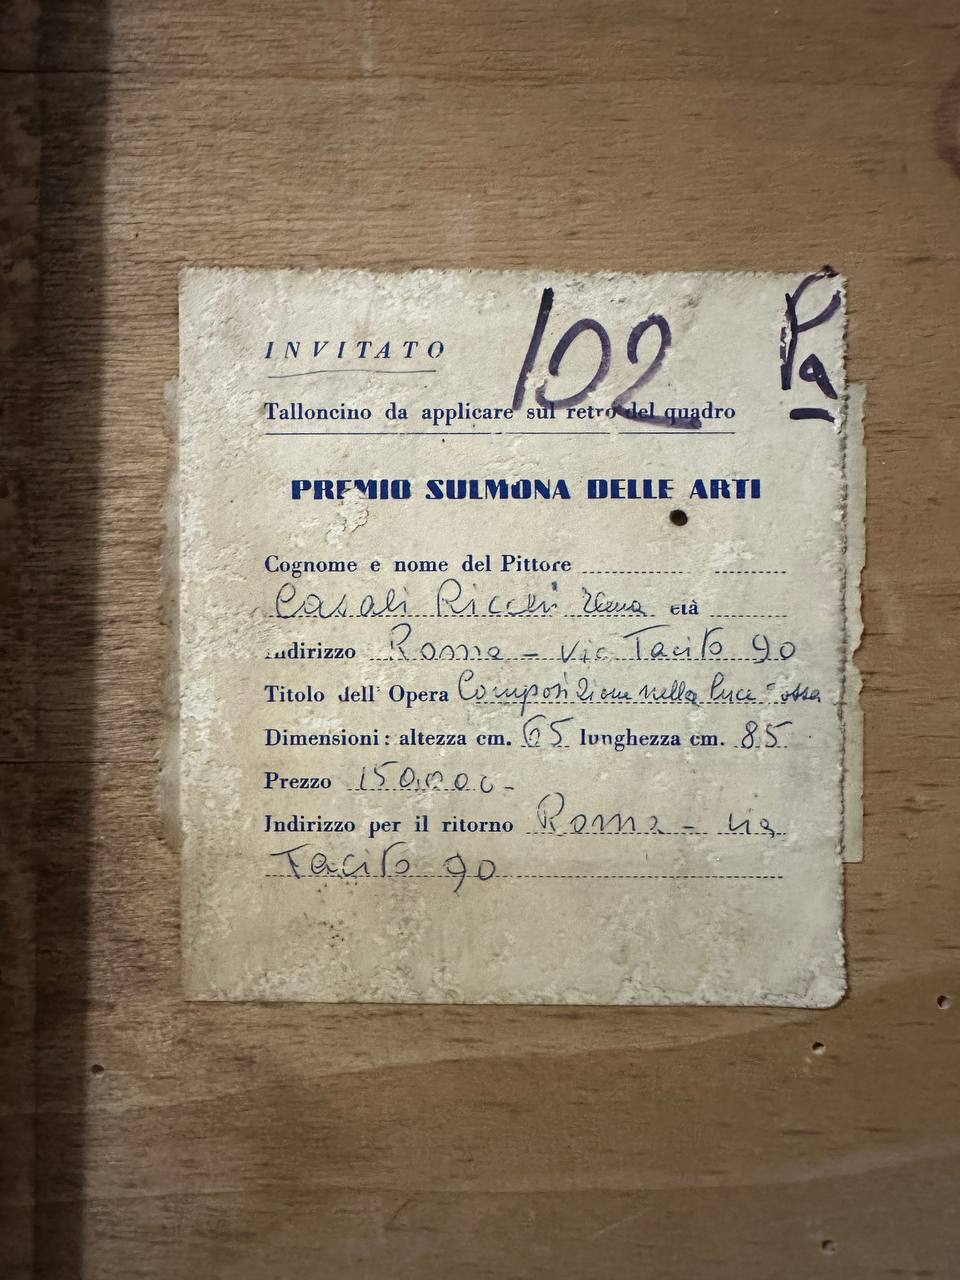 INVITATO
102
Pa
Talloncino da applicare sul retro del quadro
PREMIO SULMONA DELLE ARTI
Cognome e nome del Pittore
Casali Ricchi Elena età
Indirizzo Roma - Via Tacito 90
Titolo dell' Opera Composizione nella luce
Dimensioni: altezza cm. 65 lunghezza cm. 85
Prezzo 150.000-
Indirizzo per il ritorno Roma - via
Tacito 90